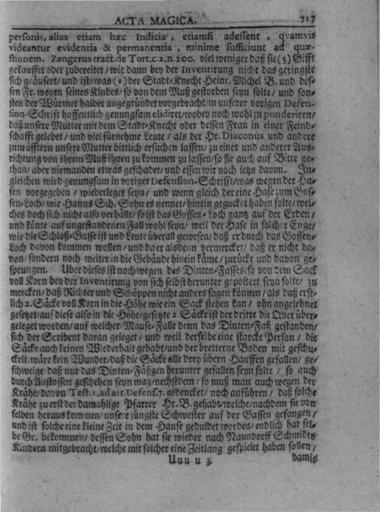 ACTA MAGICA. 717
personis, alias etiam hæc Indicia, etiamsi adessent, qvamvis
videantur evidentia & permanentia, minime sufficiunt ad quæ-
stionem. Zangerus tract. de Tort. c. 2. n. 200. viel weniger daß sie (3) Gifft
gekauffet oder zubereitet/ wie dann bey der Inventirung nicht das geringste
sich geäusert/ und ist/ was (1) der Stadt-Knecht Heinr. Michel B. und des-
sen Fr. wegen seines Kindes/ so von dem Muß gestorben seyn solte/ und son-
sten der Würmer halber ungegründet vorgebracht/ in unserer vorigen Defen-
tion-Schrifft hoffentlich genungsam elidiret/ wobey noch wohl zu ponderiren/
daß unsere Mutter mit dem Stadt-Knecht oder dessen Frau in einer Feind-
schafft gelebet/ und viel fürnehme Leute/ als der Hr. Diaconus und andere
zum öfftern unsere Mutter bittlich ersuchen lassen/ zu einer und anderer Aus-
richtung von ihrem Muß ihnen zu kommen zu lassen/ so sie auch auf Bitte ge-
than/ aber niemanden etwas geschadet/ und essen wir noch ietzo davon. Im-
gleichen wird genungsam in voriger Defension-Schrifft/ was wegen der Ha-
sen vorgegeben/ wiederleget seyn/ und wenn gleich der eine Hase zum Gos-
sen-Loch/ wie Hanns Sch. Sohn es nennet/ hinein gegucket haben solte/ wel-
ches doch sich nicht also verhält/ so ist das Gossen-Loch gantz auf der Erden/
und könte auf ungestandenen Fall wohl seyn/ weil der Hase in solcher Enge/
wie die Schloß-Gasse ist und Leute überall gewesen/ daß er durch das Gossen-
Loch davon kommen wollen/ und da er alsdenn vermercket/ daß er nicht da-
von/ sondern noch weiter in die Gebäude hinein käme/ zurücke und davon ge-
sprungen. Über dieses ist noch wegen des Dinten-Fasses/ so von dem Sack
voll Korn bey der Inventirung von sich selbst herunter gepoltert seyn solte/ zu
mercken/ daß Richter und Schöppen nicht anders sagen können/ als daß erst-
lich 2. Säcke voll Korn in die Höhe wie ein Sack stehen kan/ ohn angelehnet
gesetzet/ auf diese also in die Höhe/ gesetzte 2. Säcke ist der dritte die Over über-
geleget worden/ auf welcher Mause-Falle denn das Dinten-Faß gestanden/
sich der Scribent daran geleget/ und weil derselbe eine starcke Person/ die
Säcke auch keinen Wiederhalt gehabt/ und der bretterne Boden mit geschu-
ckelt/ wäre kein Wunder/ daß die Säcke alle drey übern Hauffen gefallen/ ge-
schweige/ daß nur das Dinten-Fäßgen herunter gefallen seyn solte/ so auch
durch Anstossen geschehen seyn mag/ nechstdem/ so muß man auch wegen der
Krähe/ davon Test. 1. ad art. Defens. 7. gedencket/ noch anführen/ daß solche
Krähe zu erst der damahlige Pfarrer Hr. B. gehabt/ welche/ nachdem sie von
selben heraus kommen/ unsere jüngste Schwester auf der Gassen gefangen/
und ist solche eine kleine Zeit in dem Hause geduldet worden/ endlich hat sel-
be Gr. bekommen/ dessen Sohn hat sie wieder nach Naundorff Schmidts
Kindern mitgebracht/ welche mit solcher eine Zeitlang gespielet haben sollen/
Uuu u 3 damit